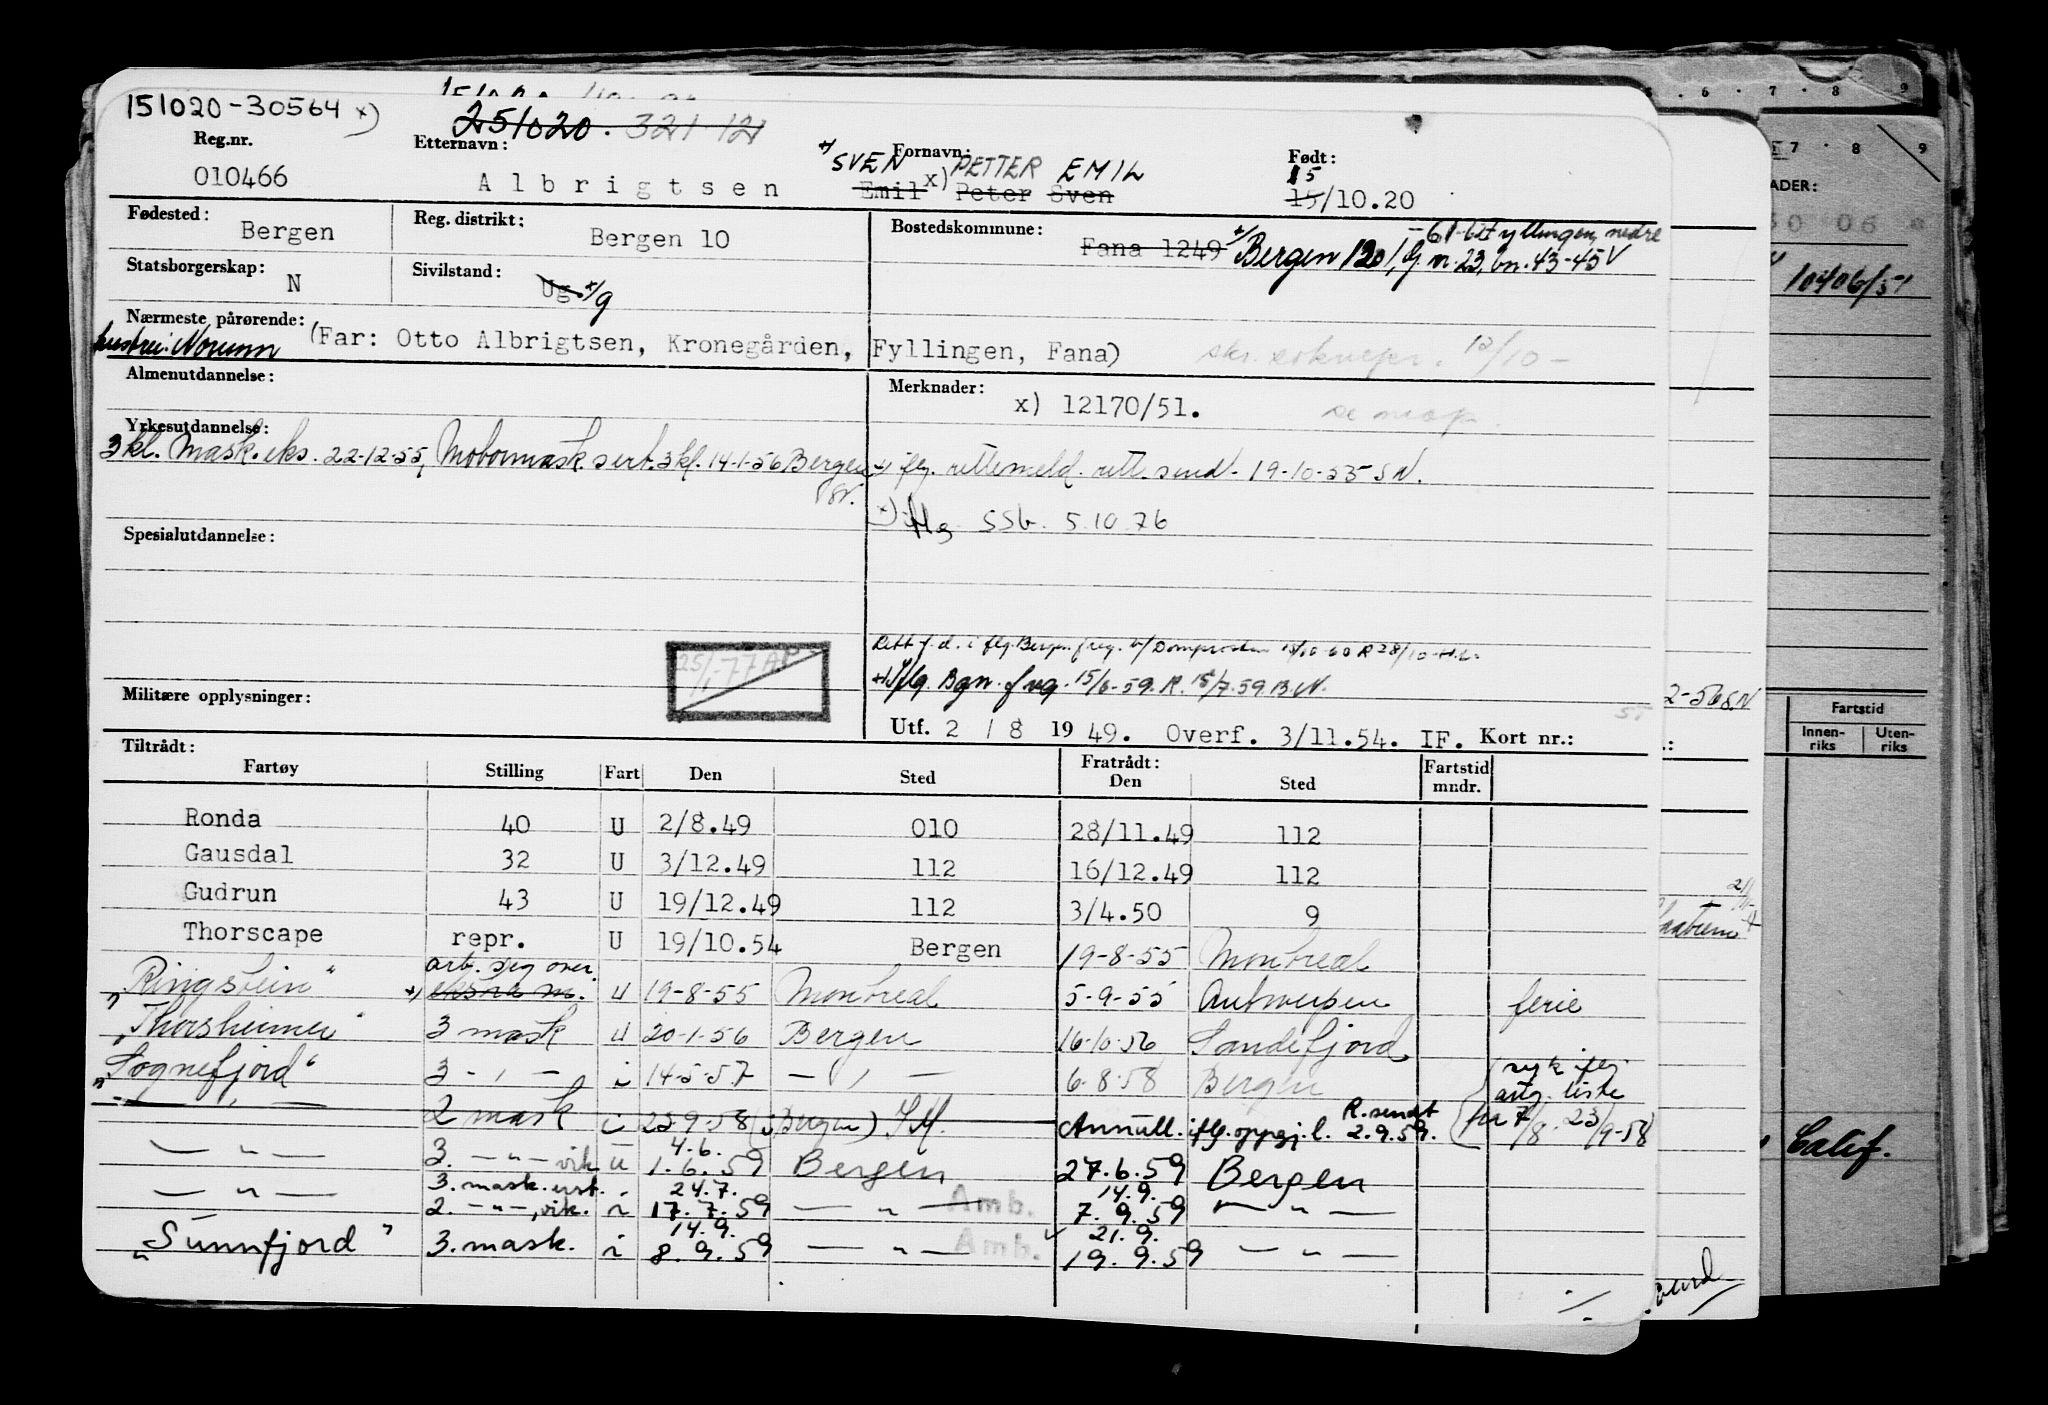 151020-30564 x)
251020. 321 121
Reg.nr. Etternavn: Fornavn: Født:
010466 Albrigtsen Emil x) Peter Sven 15/10.20
+) SVEN PETTER EMIL 15
Fødested: Bergen Reg. distrikt: Bergen 10 Bostedskommune: Fana 1249 +) Bergen 1201, g.nr. 23, bn. 43-45 V
Fyllingen, nedre
Statsborgerskap: N Sivilstand: Ug. +/g
Nærmeste pårørende: (Far: Otto Albrigtsen, Kronegården, Fyllingen, Fana)
hustru: Norunn
12/10-
Almenutdannelse: Merknader:
x) 12170/51.
Yrkesutdannelse:
3 kl. Mask. eks. 22-12-55, Motormask. sert. 3 kl. 14-1-56 Bergen SN.
+) iflg. rettemeld. rett. send. 19-10-55 SN.
x) iflg SSb. 5.10.76
Spesialutdannelse:
25/1-77 AP
Rett f.d. i flg. Bergen freg. v/Domprosten 15/10-60 R 28/10-H.L.
+) Iflg. Bgn. freg. 15/6-59. R. 15/7.59. B.N.
Militære opplysninger:
Utf. 2 / 8 19 49. Overf. 3/11.54. IF. Kort nr.:
Tiltrådt: Fratrådt:
Fartøy Stilling Fart Den Sted Den Sted Fartstid mndr.
Ronda 40 U 2/8.49 010 28/11.49 112
Gausdal 32 U 3/12.49 112 16/12.49 112
Gudrun 43 U 19/12.49 112 3/4.50 9
Thorscape repr. U 19/10.54 Bergen 19-8-55 Montreal
arb. seg over.
"Ringstein" +) ekstra m. U 19-8-55 Montreal 5-9-55 Antwerpen ferie
"Thorsheimer" 3 mask U 20-1-56 Bergen 16-10-56 Sandefjord
"Sognefjord" 3 - " - i 14-5-57 - " - 6-8-58 Bergen
syk iflg avtg. liste for 7/8. 23/9-58
- " - 2 mask i 23.9.58 (Bergen) Annull. iflg. oppgj.l. R. sendt 2.9.59.
- " - 3. - " - vik U 4.6. 1.6.59 Bergen 27.6.59 Bergen
- " - 3. mask. ust. 2. - " -, vik. i 24.7. 17.7.59 - " - Amb. 14.9. 7.9.59 - " -
"Sunnfjord" 3. mask. i 14.9. 8.9.59 - " - Amb. 21.9. 19.9.59 - " -
6 . 7 . 8 9
7 . 8 9
10406/51
2-56 S.N
Fartstid
Innen-riks Uten-riks
Calif.